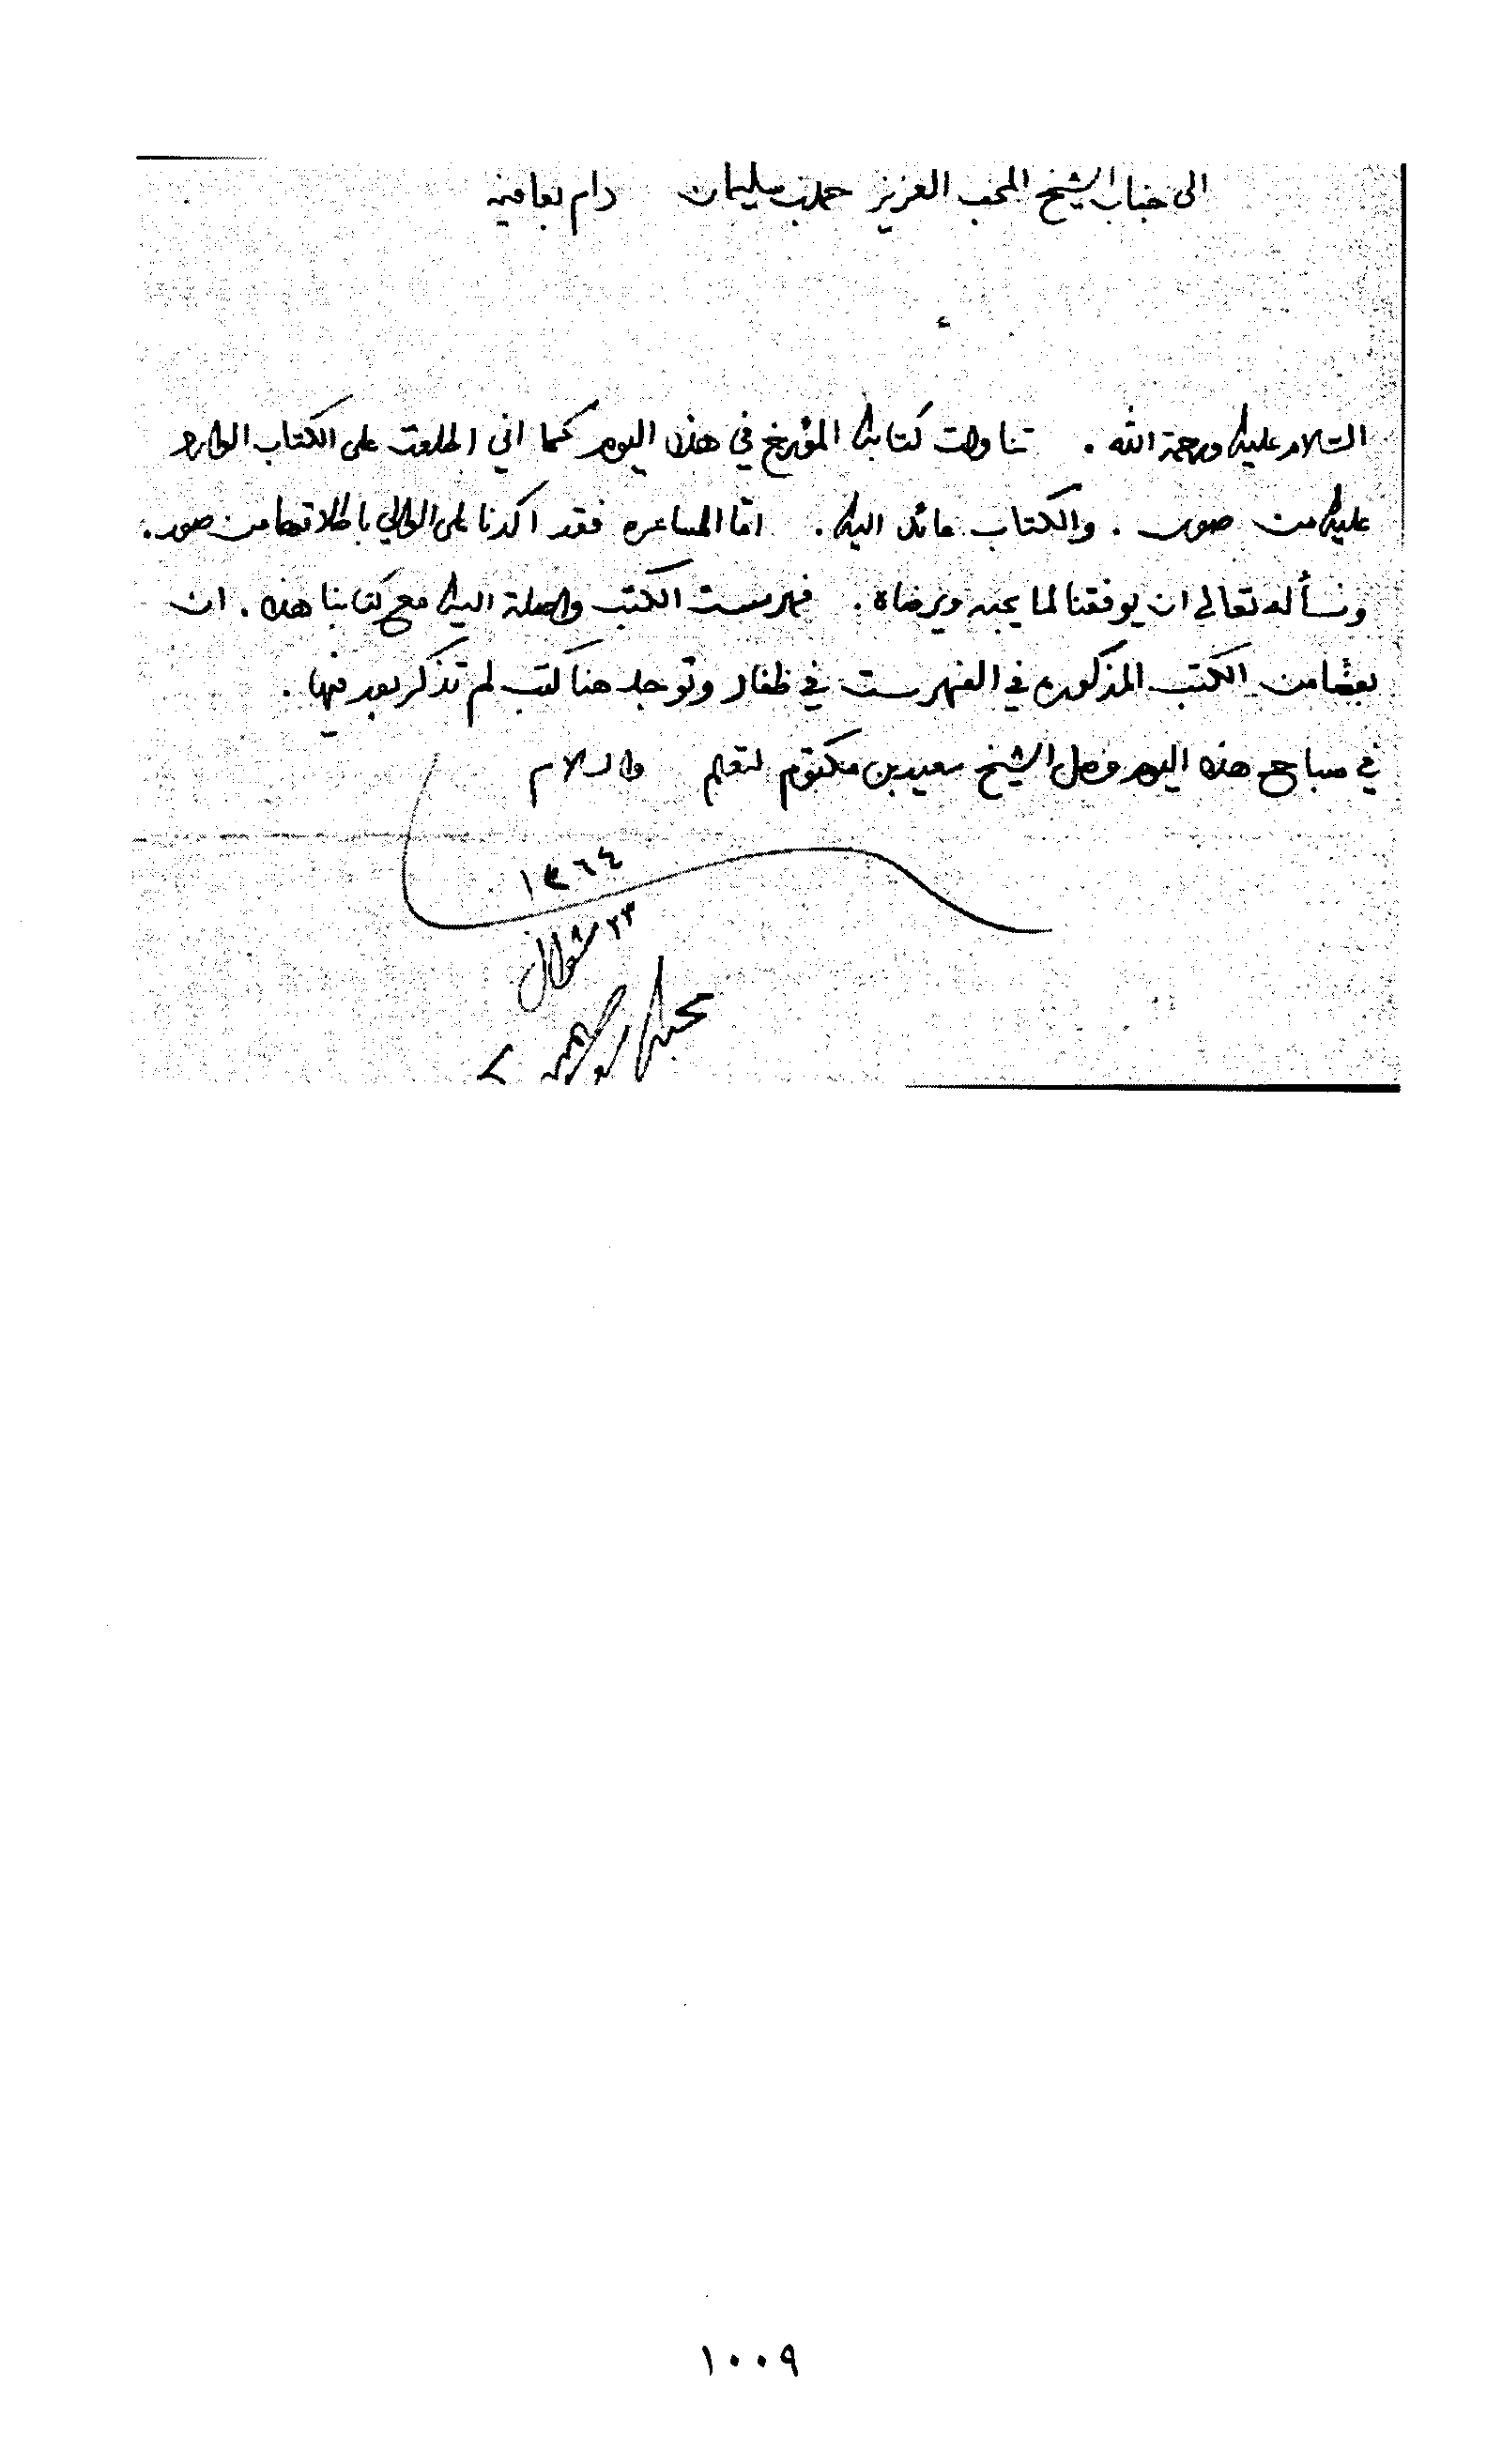 الى جناب الشيخ المحب العزيز حمد بن سليمان دام بعافيه
السلام عليك ورحمة الله . تناولت كتابك المؤرخ في هذه اليوم كما اني اطلعت على الكتاب الوارد
عليك من صور . والكتاب عائد اليك . امّا المساعره فقد اكدنا على الوالي باطلاقها من صور .
ونسأله تعالى ان يوفقنا لما يحبه ويرضاه . فهرست الكتب واصلة اليك مع كتابنا هذه . ان
بعضًا من الكتب المذكوره في الفهرست في ظفار وتوجد هنا كتب لم تذكر بعد فيها .
في صباح هذه اليوم وصل الشيخ سعيد بن مكتوم لتعلم والسلام
١٣٦٤
٢٣ شوال
محبك
١٠٠٩